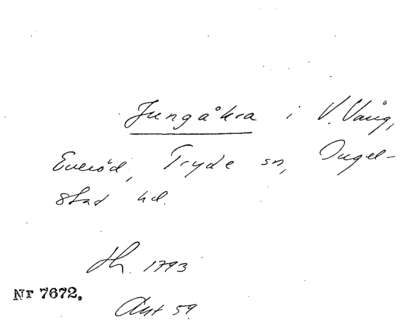 Jungåkra i V. Vång,
Everöd, Tryde sn, Ingel-
stad hd.
Sk. 1793
Nr 7672.
Akt 59